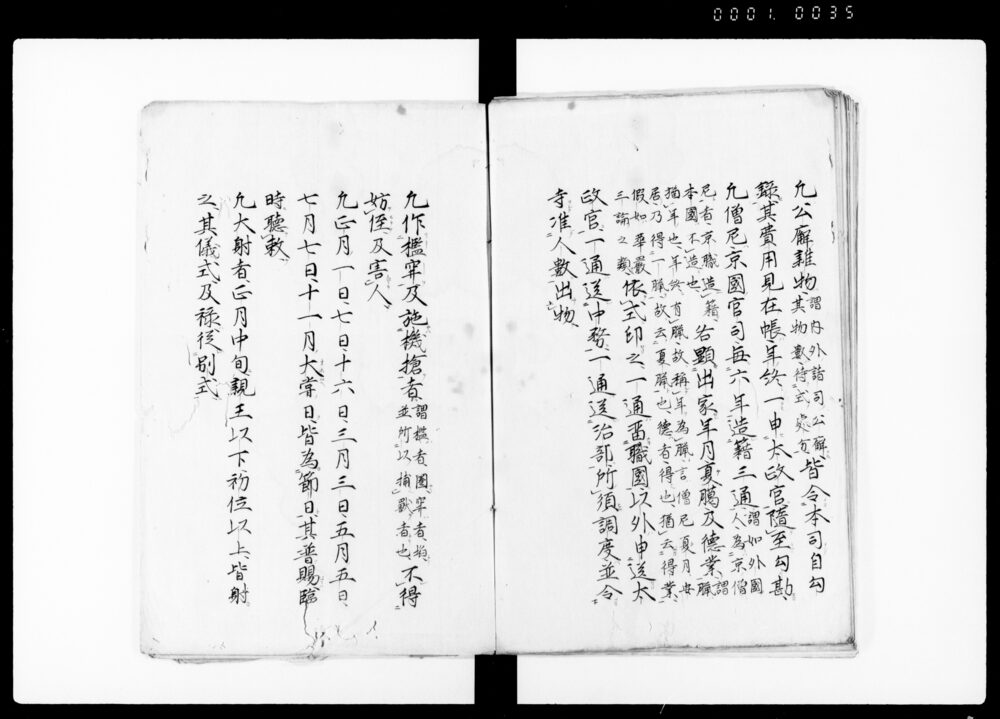 0001.0035
凢公廨雜物謂内外諸司公廨
其物數待式処分皆令本司自勾
録其費用見在帳年終一申太政官隨至勾勘
凢僧尼京國官司毎六年造籍三通謂如外國
人為京僧
尼者京職造籍
本國不造也各顕出家年月夏臈及德業謂臈
猶年也年終有臈故稱年為臈言僧尼夏月安
居乃得一臈故云夏臈也德者得也猶云得業
假如華嚴
三論之類依式印之一通畱職國以外申送太
政官一通送中務一通送治部所須調度並令
寺准人數出物
凢作檻穽及施機搶者謂檻者圈穽者坑
並所以捕獸者也不得
妨俓及害人
凢正月一日七日十六日三月三日五月五日
七月七日十一月大嘗日皆為節日其普賜臨
時聽敕
凢大射者正月中旬親王以下初位以上皆射
之其儀式及禄從別式